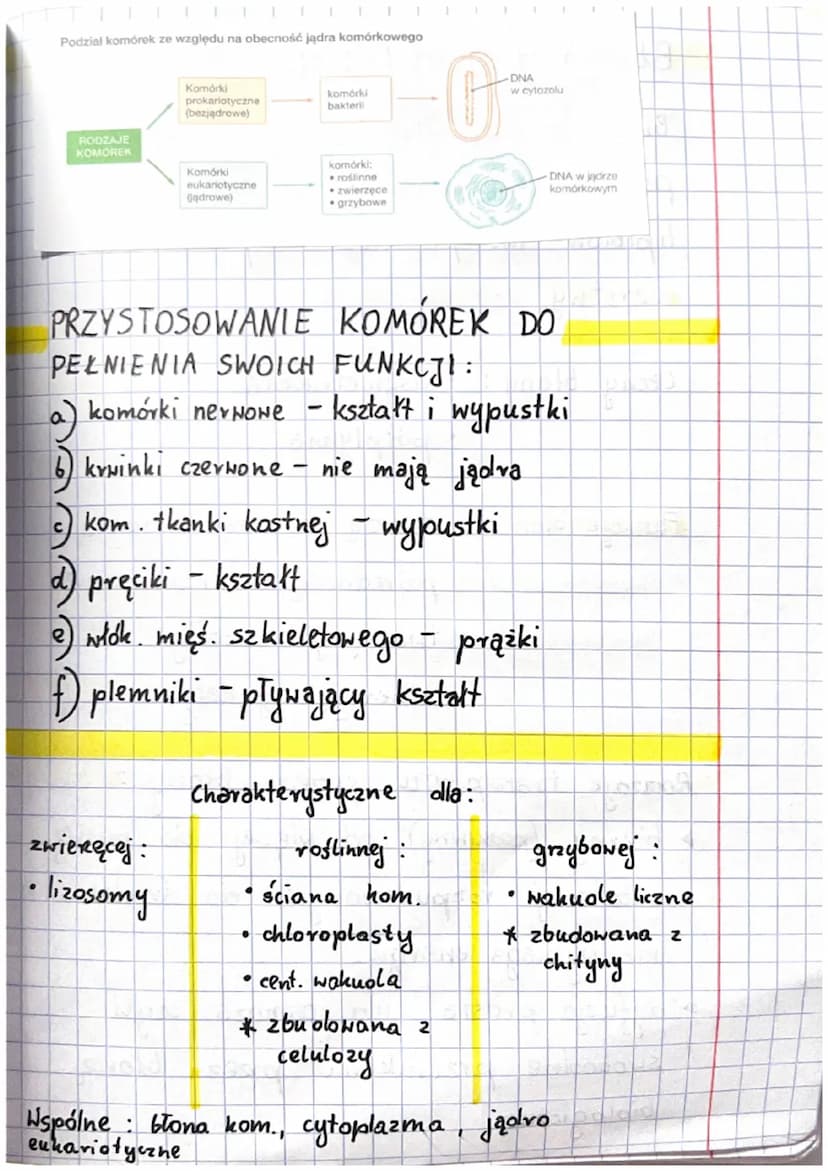 Podział komórek ze względu na obecność jądra komórkowego
RODZAJE
KOMÓREK
Komórki
prokariotyczne
(bezjądrowe)
komórki
bakterii
DNA
w cytozolu
Komórki
eukariotyczne
(jądrowe)
komórki:
• roślinne
• zwierzęce
• grzybowe
DNA w jądrze
komórkowym
PRZYSTOSOWANIE KOMÓREK DO
PEŁNIENIA SWOICH FUNKCJI:
a) komórki nerwowe - kształt i wypustki
b) krwinki czerwone - nie mają jądra
c) kom. tkanki kostnej - wypustki
d) pręciki - kształt
e) włók. mięś. szkieletowego - prążki
f) plemniki - pływający kształt
Charakterystyczne dla:
zwierzęcej:
• lizosomy
roślinnej:
• ściana kom.
• chloroplasty
• cent. wakuola
* zbudowana z
celulozy
grzybowej:
• wakuole liczne
* zbudowana z
chityny
Wspólne: błona kom., cytoplazma, jądro
eukariotyczne